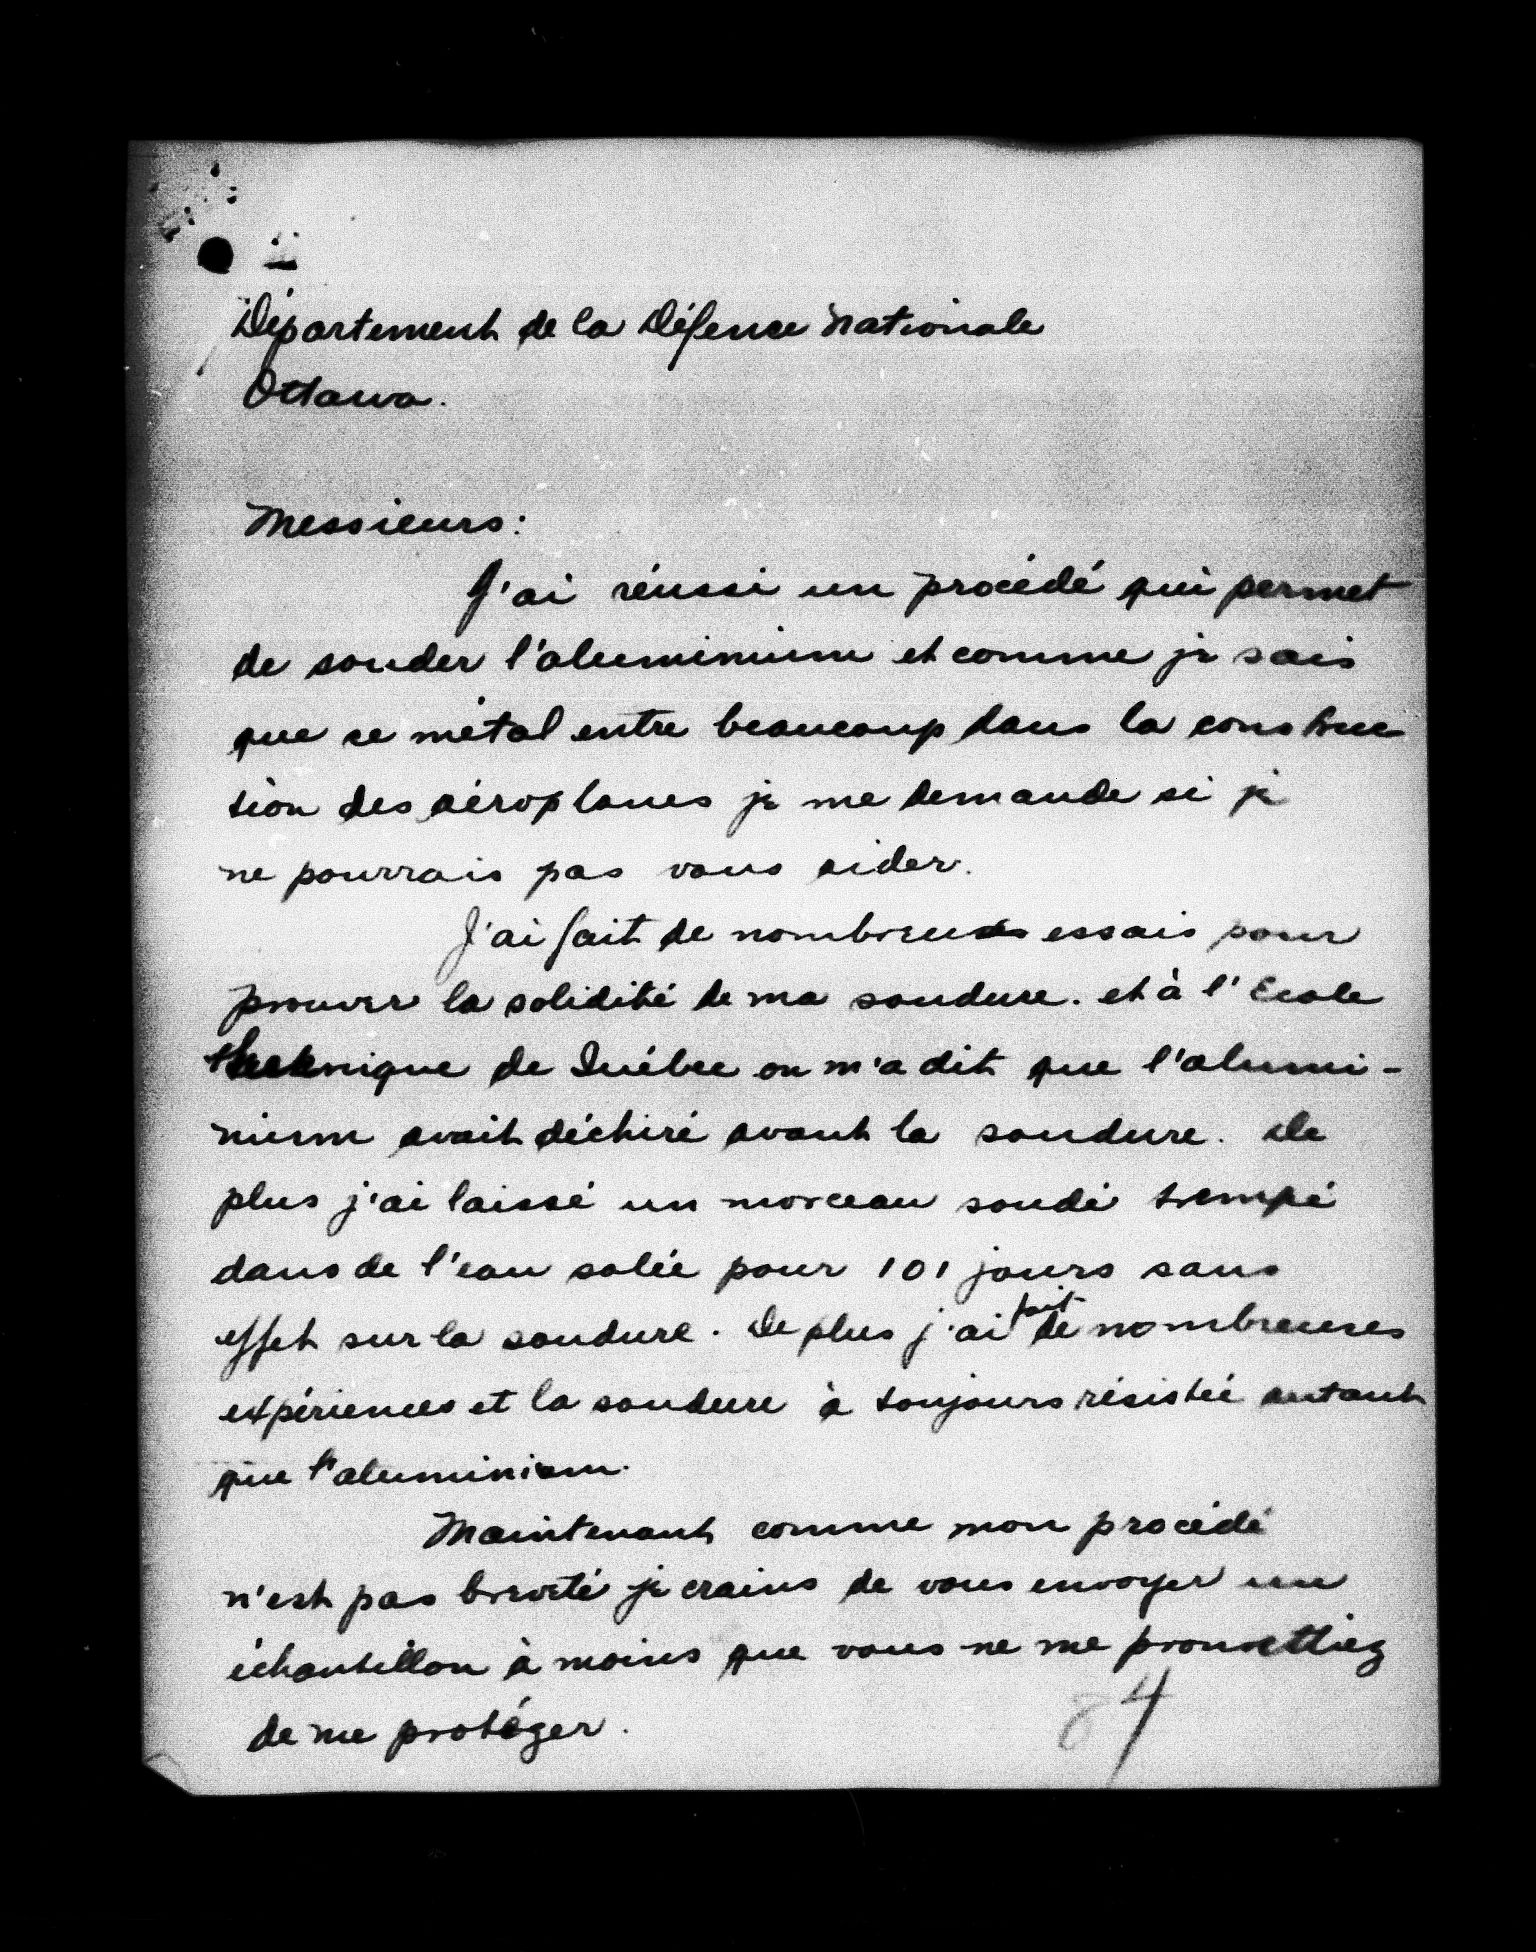 Département de la Défence Nationale
Ottawa.
Messieurs:
J'ai réussi un procédé qui permet
de souder l'aluminium et comme je sais
que ce métal entre beaucoup dans la construc
tion des aéroplanes je me demande si je
ne pourrais pas vous aider.
J'ai fait de nombreuses essais pour
prouver la solidité de ma soudure. et à l'Ecole
technique de Québec on m'a dit que l'alumi-
nium avait déchiré avant la soudure. De
plus j'ai laissé un morceau soudé trempé
dans de l'eau salée pour 101 jours sans
effet sur la soudure. De plus j'ai fait de nombreuses
expériences et la soudure à toujours résistée autant
que l'aluminium.
Maintenant comme mon procédé
n'est pas breveté je crains de vous envoyer un
échantillon à moins que vous ne me promettiez
de me protéger.
84